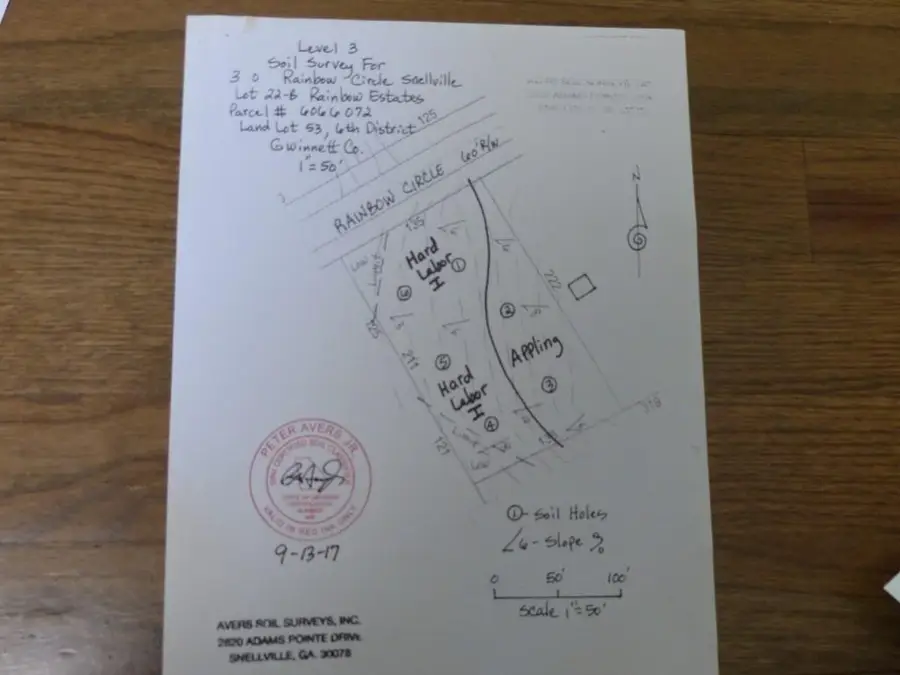 Level 3
Soil Survey For
3 0 Rainbow Circle Snellville
Lot 22-B Rainbow Estates
Parcel # 6066 072
Land Lot 53, 6th District
Gwinnett Co.
1"=50'
125
RAINBOW CIRCLE 60' R/W
N
135
6
Hard
Labor
I
1
6
222
6
2
5
5
Hard
Labor
I
Appling
3
4
211
121
316
PETER AVERS JR.
VALID IN RED INK ONLY
9-13-17
1 - Soil Holes
6 - Slope %
0 50' 100'
Scale 1"=50'
AVERS SOIL SURVEYS, INC.
2820 ADAMS POINTE DRIVE
SNELLVILLE, GA. 30078